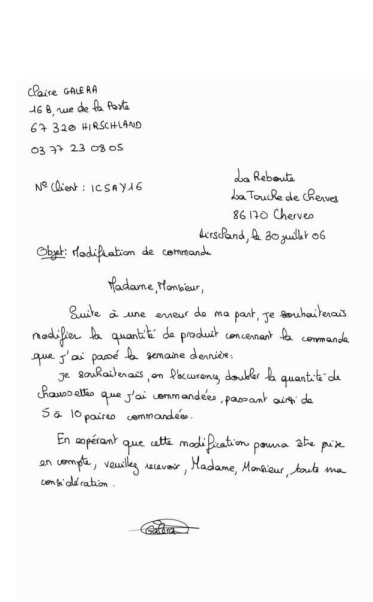 Claire GALERA
16 B, rue de la Poste
67 320 HIRSCHLAND
03 77 23 08 05
La Reboute
N° Client : ICSAY16
La Touche de Cherves
86170 Cherves
Hirschland, le 30 juillet 06
Objet : Modification de commande
Madame, Monsieur,
Suite à une erreur de ma part, je souhaiterais
modifier la quantité de produit concernant la commande
que j'ai passé la semaine dernière.
Je souhaiterais, en l'occurency, doubler la quantité de
chaussettes que j'ai commandées, passant ainsi de
5 à 10 paires commandées.
En espérant que cette modification pourra être prise
en compte, veuillez recevoir, Madame, Monsieur, toute ma
considération.
Galéra